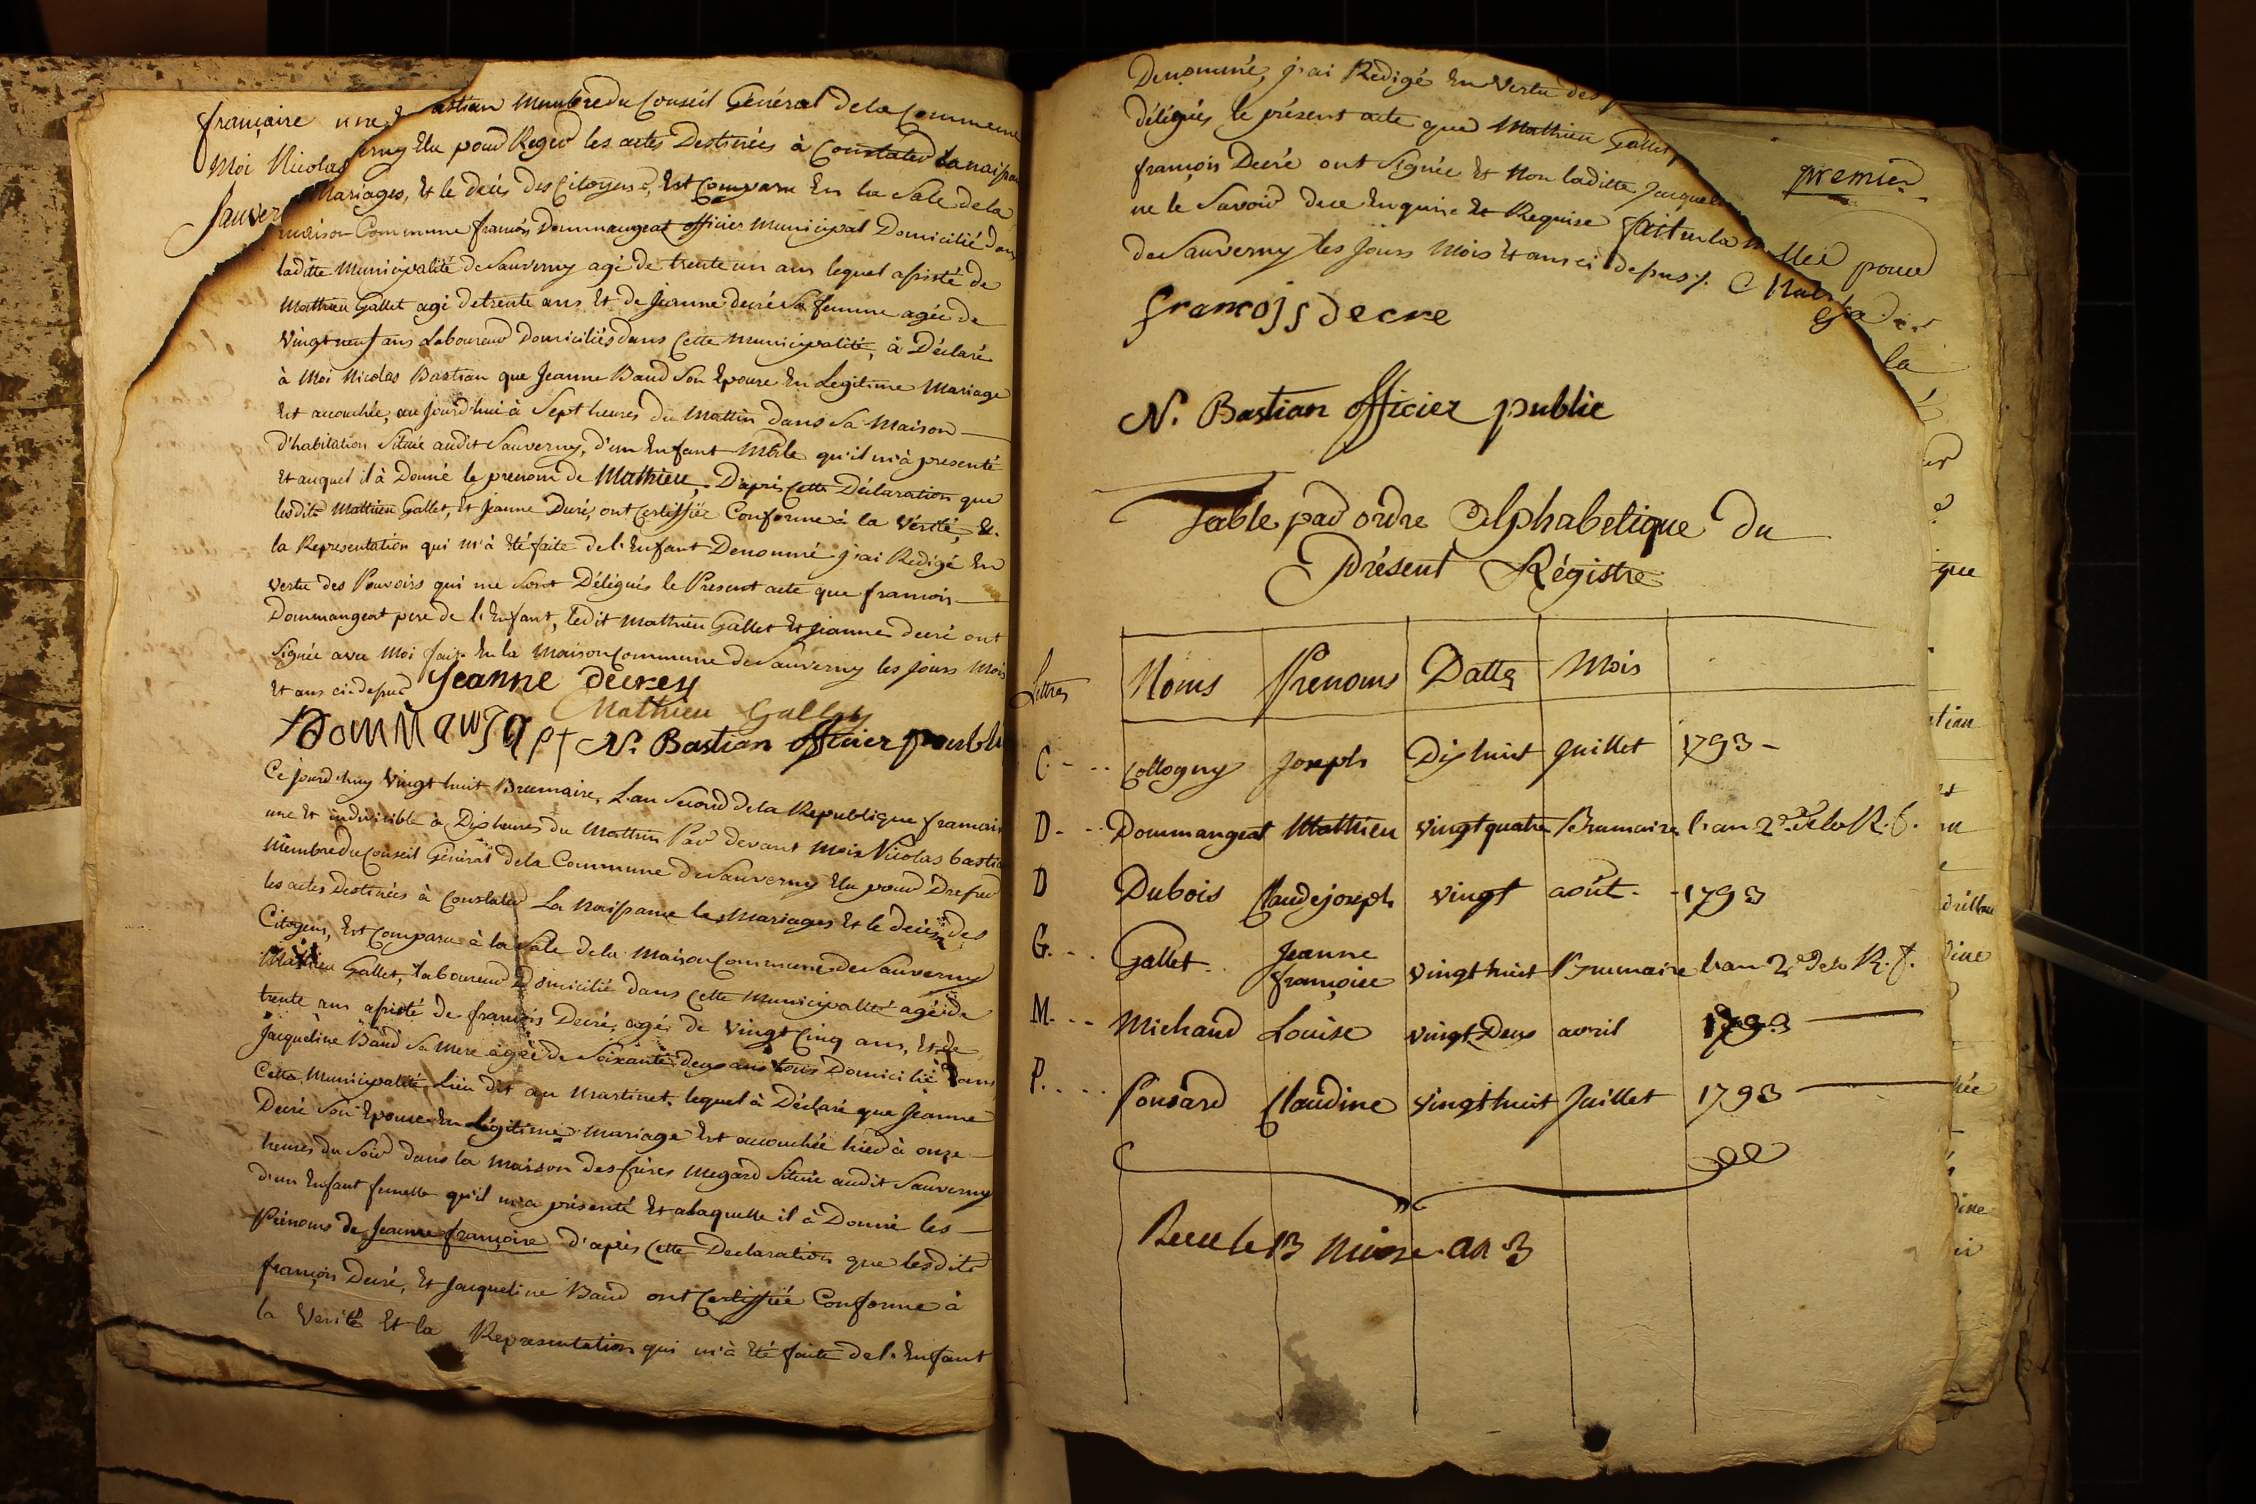 française une
Moi Nicolas
Sauver
astian Membre du Conseil Général de la Commune
erny Elu pour Reger les actes Destinées à Constater la naissan
Mariages, Et le décés des Citoyens, Est Comparu En la Sale de la
maison Commune françois Dommangeat officier Municipal Domicilié dans
laditte Municipalité de Sauverny agé de trente un ans lequel assisté de
Mathieu Gallet agé de trente ans Et de Jeanne decré Sa femme agée de
Vingt neuf ans Laboureur Domiciliés dans Cette Municipalité, à Déclaré
à Moi Nicolas Bastian que Jeanne Baud Son Epouse En Legitime Mariage
Est accouchée, aujourd'hui à Sept heures du Mattin dans Sa Maison
d'habitation Située audit Sauverny, d'un Enfant Mâle qu'il m'à presenté
Et auquel il à Donné le prenom de Mathieu, D'après Cette Déclaration que
lesdits Mathieu Gallet, Et Jeanne Decré, ont Certiffiée Conforme à la Vérité, &.
la Representation qui m'à Eté faite de l'Enfant Denommé j'ai Redigé En
vertu des Pouvoirs qui me Sont Délégués le Présent acte que françois
Dommangeat pere de l'Enfant, ledit Mathieu Gallet Et Jeanne decré ont
Signée avec Moi fait En la Maison Commune de Sauverny les Jours Mois
Et ans ci-depus
Jeanne decrey
Mathieu Gallet
N. Bastian officier publi
Ce jourd'huy Vingt huit Brumaire, L'an Second de la Republique francais
une Et indivisible à Dix heures du Mattin Par devant Moi Nicolas basti
Membre du Conseil Général de la Commune de Sauverny Elu pour Dresser
les actes Destinées à Constater La Naissance les Mariages Et le décés des
Citoyens, Est Comparu à la Sale de la Maison Commune de Sauverny
Mathieu Gallet, Laboureur Domicilié dans Cette Municipalité agé de
trente ans assisté de françois Decré, agé de Vingt Cinq ans, Et de
Jacqueline Baud Sa Mere agée de Soixante deux ans tous Domicilié dans
Cette Municipalité Lieu dit au Martinet. lequel à Déclaré que Jeanne
Decré Son Epouse En Légitime Mariage Est accouchée hier à onze
heures du Soir dans la Maison des frères Megard Située audit Sauverny
d'un Enfant femelle qu'il m'a présenté Et alaquelle il à Donné les
Prénoms de Jeanne françoise d'après Cette Declaration que lesdits
françois Decré, Et Jacqueline Baud ont Certiffiée Conforme à
la Verité Et la Representation qui m'à Eté faite de l'Enfant
Denommé, j'ai Redigé En Vertu des
délégués le présent acte que Mathieu Gallet
françois Decré ont Signée Et Non laditte Jacquel
ne le Savoir de ce Enquise Et Requise fait En la
de Sauverny les Jours Mois Et ans ci depus
francojs decre
N. Bastian officier public
Table par ordre Alphabetique du
Présent Régistre
Lettres Noms Prenoms Dattes Mois
C. Collogny Joseph Dix huit Juillet 1793
D. Dommangeat Mathieu Vingt quatre Brumaire l'an 2e de la R. f.
D Dubois Claude joseph Vingt août 1793
G. Gallet Jeanne françoise Vingt huit Brumaire l'an 2e de la R. f.
M. Michaud Louise Vingt Deux avril 1793
P. Ponsard Claudine Vingt huit Juillet 1793
an 3
premier
pour
la
que